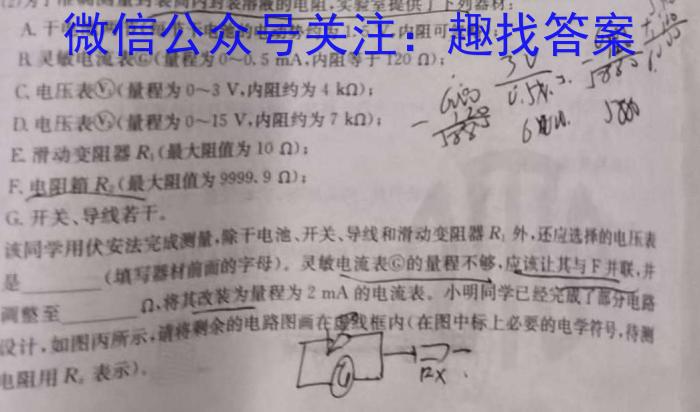 (2)为了准确测量封装筒内封装溶液的电阻,实验室提供了下列器材:
微信公众号关注:趣找答案
B. 灵敏电流表Ⓖ(量程为0~0.5 mA,内阻等于120 Ω);
C. 电压表Ⓥ(量程为0~3 V,内阻约为4 kΩ);
D. 电压表Ⓥ(量程为0~15 V,内阻约为7 kΩ);
E. 滑动变阻器 R₁(最大阻值为10 Ω);
F. 电阻箱 R₂(最大阻值为9999.9 Ω);
G. 开关、导线若干。
该同学用伏安法完成测量,除干电池、开关、导线和滑动变阻器 R₁ 外,还应选择的电压表
是________(填写器材前面的字母)。灵敏电流表Ⓖ的量程不够,应该让其与F并联,并
调整至________Ω,将其改装为量程为2 mA的电流表。小明同学已经完成了部分电路
设计,如图丙所示,请将剩余的电路图画在虚线框内(在图中标上必要的电学符号,待测
电阻用 Rₓ 表示)。
G
Rx